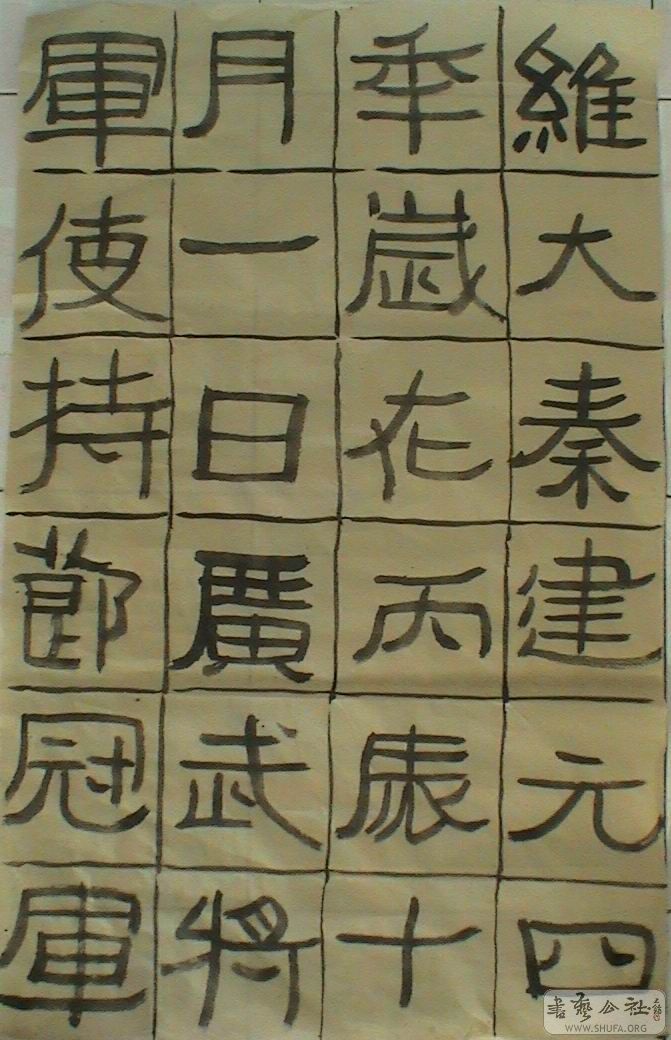 維大秦建元四
年歲在丙辰十
月一日廣武將
軍使持節冠軍
書藝公社
WWW.SHUFA.ORG